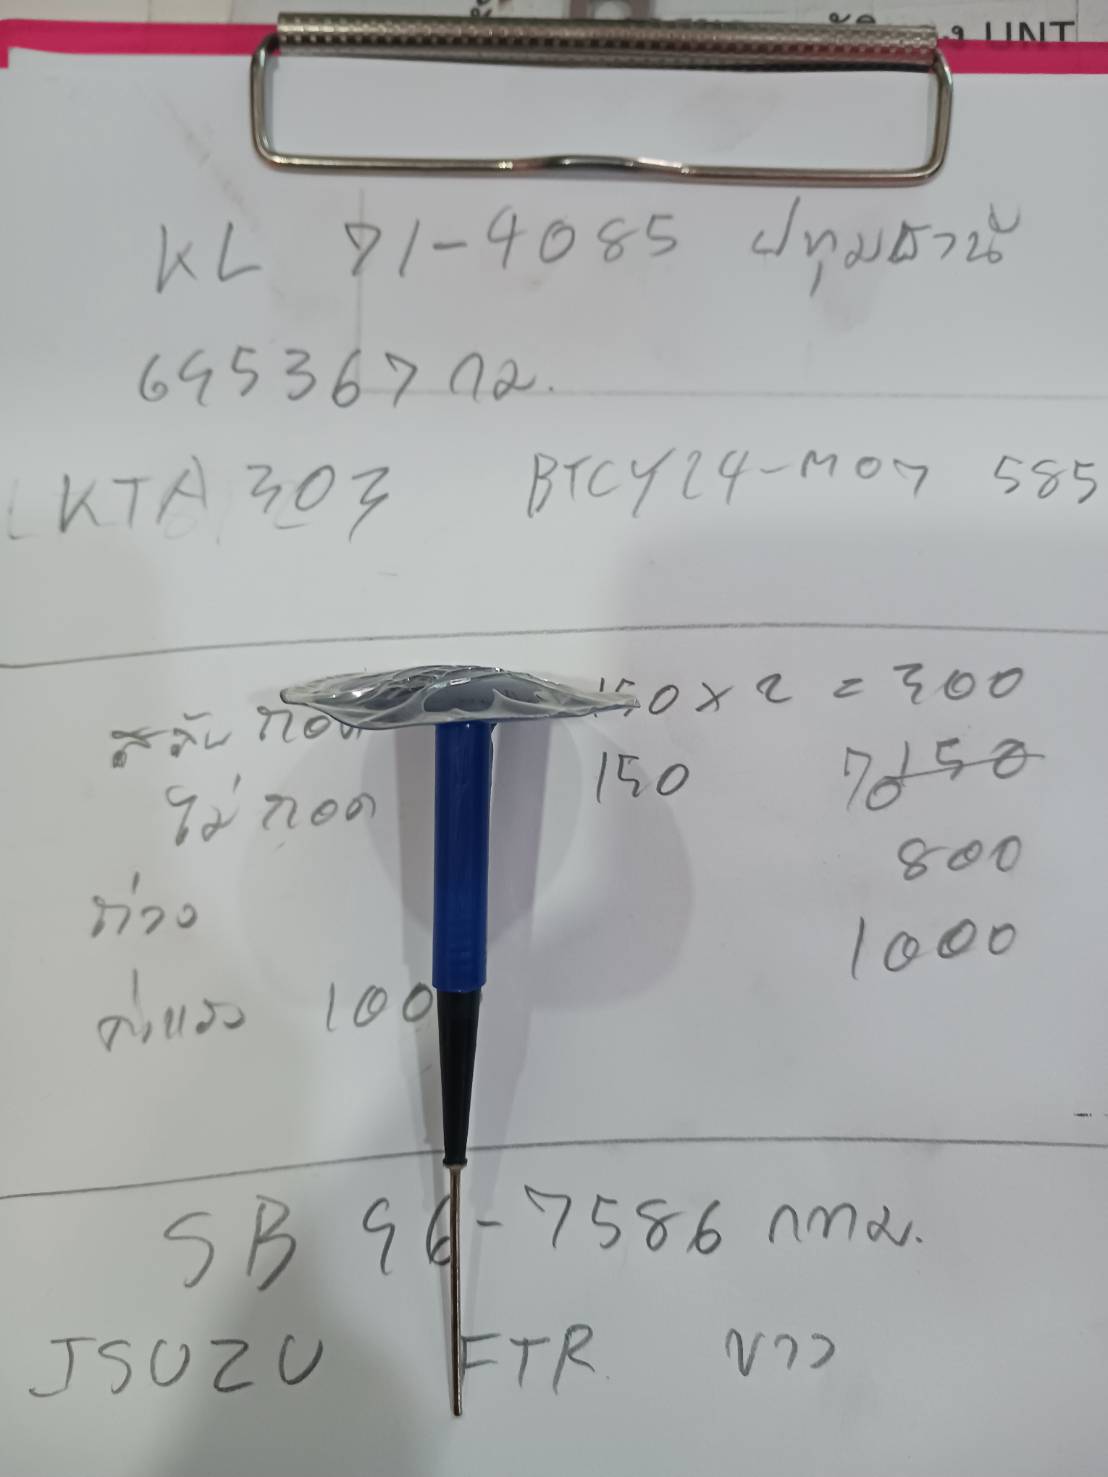 UNT
KL 71-4085 ปทุมธานี
695367 กม.
LKTA303 BTCY24-M07 585
สลับ ถอด 150 x 2 = 300
ใส่ ถอด 150
800
ถ่วง 1000
ค่าแรง 100
SB 96-7586 กทม.
ISUZU FTR ขาว